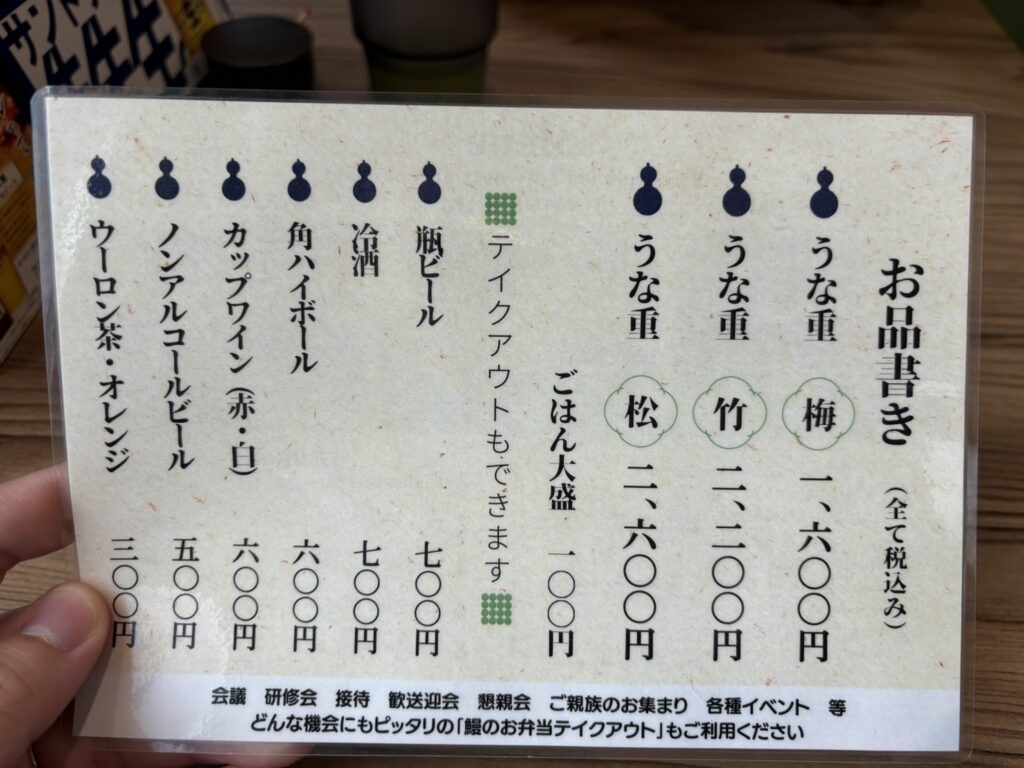 お品書き（全て税込み）
うな重 梅 一、六〇〇円
うな重 竹 二、二〇〇円
うな重 松 二、六〇〇円
ごはん大盛 一〇〇円
テイクアウトもできます
瓶ビール 七〇〇円
冷酒 七〇〇円
角ハイボール 六〇〇円
カップワイン（赤・白） 六〇〇円
ノンアルコールビール 五〇〇円
ウーロン茶・オレンジ 三〇〇円
会議 研修会 接待 歓送迎会 懇親会 ご親族のお集まり 各種イベント 等
どんな機会にもピッタリの「鰻のお弁当テイクアウト」もご利用ください